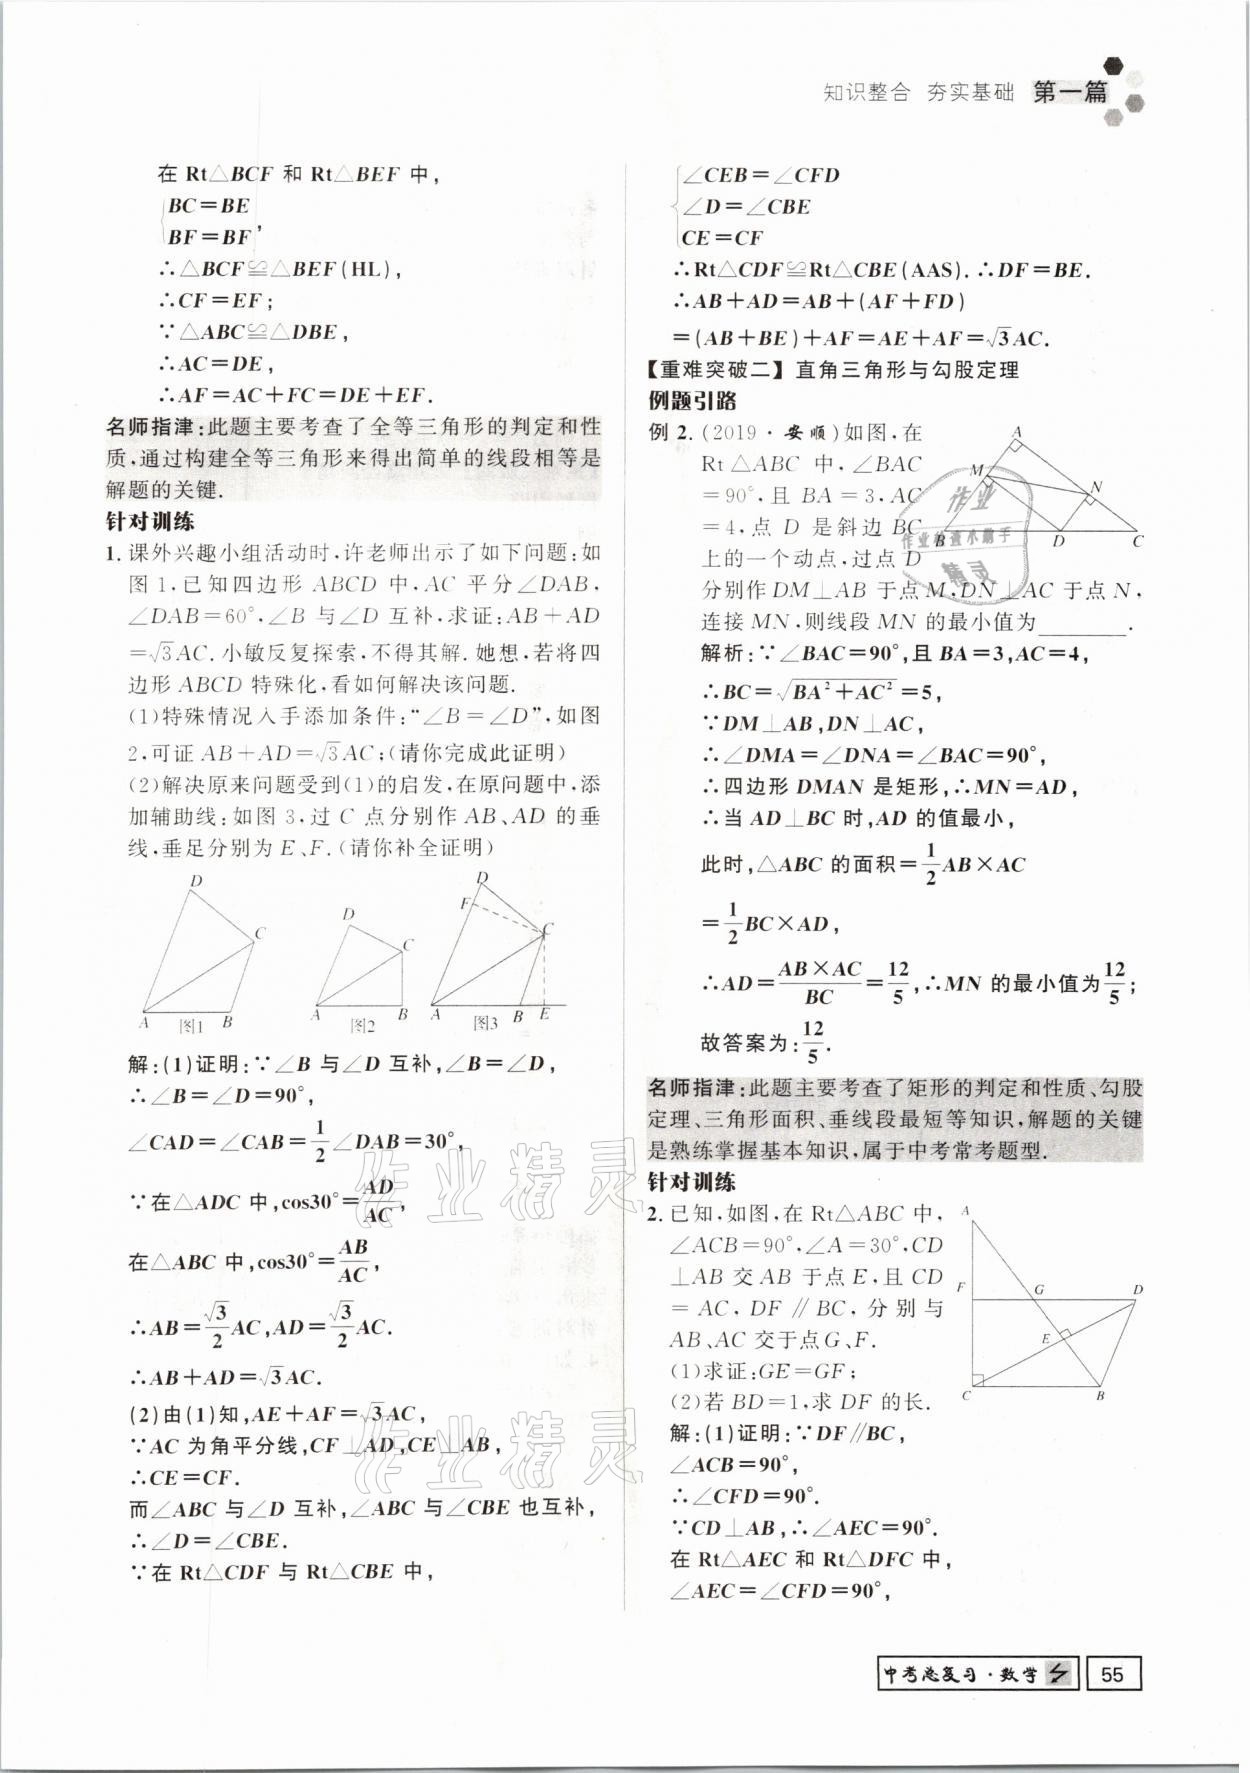 知识整合 夯实基础 第一篇
在 Rt△BCF 和 Rt△BEF 中,
{BC=BE
BF=BF,
∴△BCF≌△BEF(HL),
∴CF=EF;
∵△ABC≌△DBE,
∴AC=DE,
∴AF=AC+FC=DE+EF.
名师指津:此题主要考查了全等三角形的判定和性
质,通过构建全等三角形来得出简单的线段相等是
解题的关键.
针对训练
1. 课外兴趣小组活动时,许老师出示了如下问题:如
图 1,已知四边形 ABCD 中,AC 平分∠DAB,
∠DAB=60°,∠B 与∠D 互补,求证:AB+AD
=√3AC.小敏反复探索,不得其解.她想,若将四
边形 ABCD 特殊化,看如何解决该问题.
(1)特殊情况入手添加条件:“∠B=∠D”,如图
2,可证 AB+AD=√3AC;(请你完成此证明)
(2)解决原来问题受到(1)的启发,在原问题中,添
加辅助线:如图 3,过 C 点分别作 AB、AD 的垂
线,垂足分别为 E、F.(请你补全证明)
D C A B 图1
D C A B 图2
D F C A B E 图3
解:(1)证明:∵∠B 与∠D 互补,∠B=∠D,
∴∠B=∠D=90°,
∠CAD=∠CAB=1/2∠DAB=30°,
∵在△ADC 中,cos30°=AD/AC,
在△ABC 中,cos30°=AB/AC,
∴AB=√3/2AC,AD=√3/2AC.
∴AB+AD=√3AC.
(2)由(1)知,AE+AF=√3AC,
∵AC 为角平分线,CF⊥AD,CE⊥AB,
∴CE=CF.
而∠ABC 与∠D 互补,∠ABC 与∠CBE 也互补,
∴∠D=∠CBE.
∵在 Rt△CDF 与 Rt△CBE 中,
{∠CEB=∠CFD
∠D=∠CBE
CE=CF
∴Rt△CDF≌Rt△CBE(AAS).∴DF=BE.
∴AB+AD=AB+(AF+FD)
=(AB+BE)+AF=AE+AF=√3AC.
【重难突破二】直角三角形与勾股定理
例题引路
例 2.(2019·安顺)如图,在
Rt△ABC 中,∠BAC
=90°,且 BA=3,AC
=4,点 D 是斜边 BC
上的一个动点,过点 D
分别作 DM⊥AB 于点 M,DN⊥AC 于点 N,
连接 MN,则线段 MN 的最小值为________.
A M N B D C
解析:∵∠BAC=90°,且 BA=3,AC=4,
∴BC=√(BA²+AC²)=5,
∵DM⊥AB,DN⊥AC,
∴∠DMA=∠DNA=∠BAC=90°,
∴四边形 DMAN 是矩形,∴MN=AD,
∴当 AD⊥BC 时,AD 的值最小,
此时,△ABC 的面积=1/2AB×AC
=1/2BC×AD,
∴AD=AB×AC/BC=12/5,∴MN 的最小值为12/5;
故答案为:12/5.
名师指津:此题主要考查了矩形的判定和性质、勾股
定理、三角形面积、垂线段最短等知识,解题的关键
是熟练掌握基本知识,属于中考常考题型.
针对训练
2. 已知,如图,在 Rt△ABC 中,
∠ACB=90°,∠A=30°,CD
⊥AB 交 AB 于点 E,且 CD
=AC,DF∥BC,分别与
AB、AC 交于点 G、F.
(1)求证:GE=GF;
(2)若 BD=1,求 DF 的长.
A F G D E C B
解:(1)证明:∵DF∥BC,
∠ACB=90°,
∴∠CFD=90°.
∵CD⊥AB,∴∠AEC=90°.
在 Rt△AEC 和 Rt△DFC 中,
∠AEC=∠CFD=90°,
作业
作业检查小助手
精灵
作业精灵
作业精灵
中考总复习·数学 55